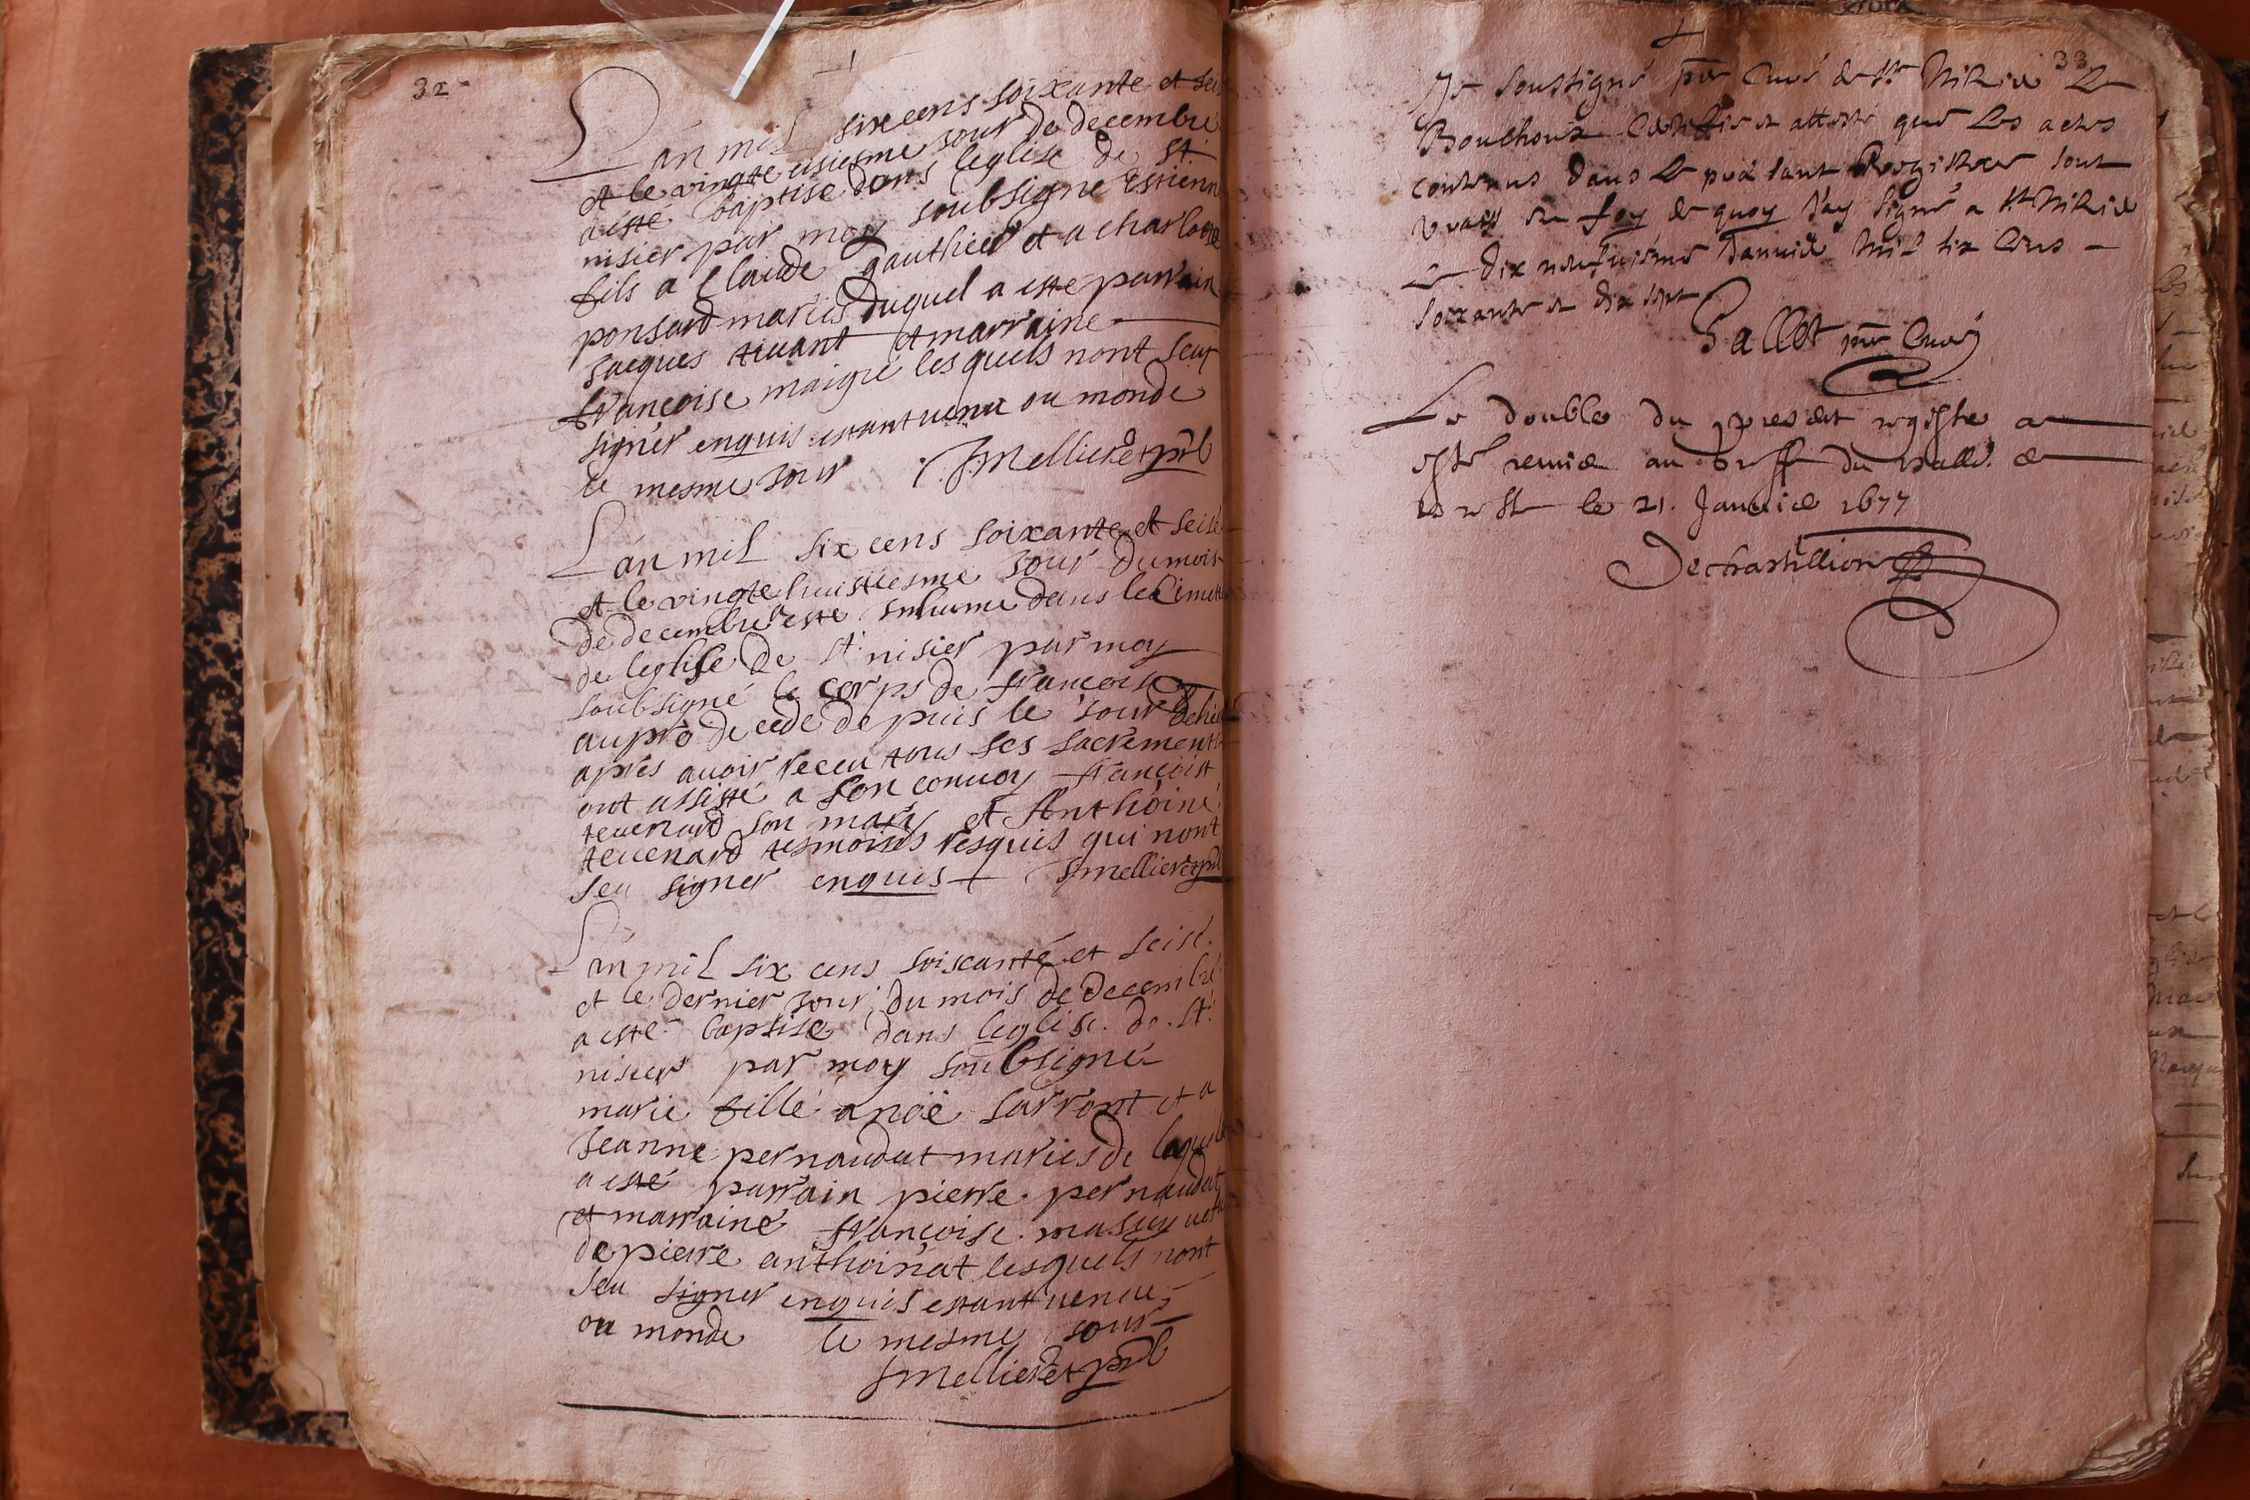 32
Lan mil sixcens soixante et seis
et le vingte usiesme jour de decembre
a esté baptisé dans leglise de St
nisier par moy soubsigné Estienne
fils a Claude gauthier et a charlotte
ponsard mariés duquel a esté parrain
Jacques tivant et marraine
françoise maigre lesquels nont seu
signer enquis estant venu ou monde
le mesme jour J Mellieret pbr
Lan mil six cens soixante et seise
et le vingte huistiesme jour du mois
de decembre a esté inhume dans le Cimet
de leglise de St nisier par moy
soubsigné le corps de françoise
aupro decede depuis le jour dehier
apres avoir receu tous ses sacrements
ont assisté a son convoy françois
tevenard son mary et Anthoine
tevenard tesmoins resquis qui nont
seu signer enquis J mellieret pbr
Lan mil six cens soiscante et seise
et le dernier jour du mois de decembre
a esté baptise dans leglise de St
nisier par moy soubsigné
marie fille a noë sarront et a
Jeanne pernaudat mariés de laquelle
a esté parrain pierre pernaudat
et marraine françoise
de pierre anthoinat lesquels nont
seu signer enquis estant venue
ou monde le mesme jour
J Mellieret pbr
33
Je soussigné pbr Curé de St Nisier Le
Bouchoux Certiffie et atteste que les actes
contenus dans le present Registre sont
vrais en foy de quoy Jay signé a St Nisier
le dix neufviesme Janvier mil six Cens
soixante et dix sept
Gallet pbr Curé
Le double du present registre a
esté remis au greff du baill. de
bresse le 21. Janvier 1677
Dechastillion